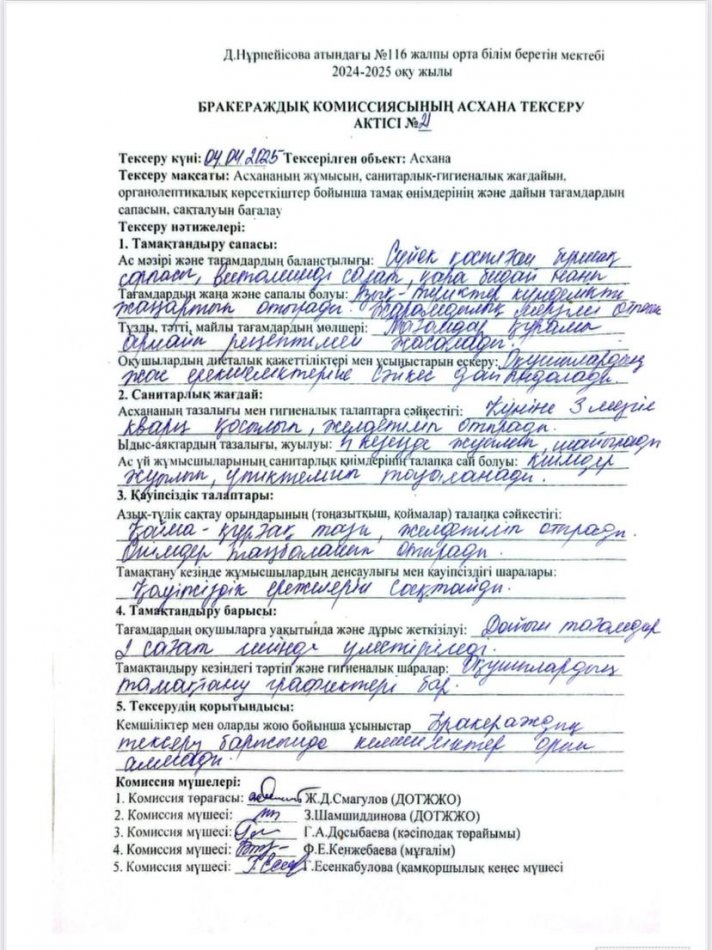 Д.Нұрпейісова атындағы №116 жалпы орта білім беретін мектебі
2024-2025 оқу жылы
БРАКЕРАЖДЫҚ КОМИССИЯСЫНЫҢ АСХАНА ТЕКСЕРУ
АКТІСІ №21
Тексеру күні: 04.04.2025 Тексерілген объект: Асхана
Тексеру мақсаты: Асхананың жұмысын, санитарлық-гигиеналық жағдайын,
органолептикалық көрсеткіштер бойынша тамақ өнімдерінің және дайын тағамдардың
сапасын, сақталуын бағалау
Тексеру нәтижелері:
1. Тамақтандыру сапасы:
Ас мәзірі және тағамдардың баланстылығы: Сүйек қосылған бұршақ
сорпасы, салат, қара бидай наны
Тағамдардың жаңа және сапалы болуы: Азық-түліктер күнделікті
жаңартып отырады. Жарамдылық мерзімі
Тұзды, тәтті, майлы тағамдардың мөлшері: Тағамдар құрамы
арнайы рецептпен жасалады.
Оқушылардың диеталық қажеттіліктері мен ұсыныстарын ескеру: Оқушылардың
жас ерекшеліктеріне сәйкес дайындалады.
2. Санитарлық жағдай:
Асхананың тазалығы мен гигиеналық талаптарға сәйкестігі: Күніне 3 мезгіл
кварц қосылып, желдетіліп отырады.
Ыдыс-аяқтардың тазалығы, жуылуы: 4 кезеңде жуылып, шайылады
Ас үй жұмысшыларының санитарлық киімдерінің талапқа сай болуы: Киімдер
жуылып, үтіктеліп тазаланады.
3. Қауіпсіздік талаптары:
Азық-түлік сақтау орындарының (тоңазытқыш, қоймалар) талапқа сәйкестігі:
Қойма - құрғақ таза, желдетіліп отырады.
Өнімдер таңбаланып отырады.
Тамақтану кезінде жұмысшылардың денсаулығы мен қауіпсіздігі шаралары:
Қауіпсіздік ережелерін сақтайды.
4. Тамақтандыру барысы:
Тағамдардың оқушыларға уақытында және дұрыс жеткізілуі: Дайын тағамдар
2 сағат ішінде үлестіріледі.
Тамақтандыру кезіндегі тәртіп және гигиеналық шаралар: Оқушылардың
тамақтану графиктері бар.
5. Тексерудің қорытындысы:
Кемшіліктер мен оларды жою бойынша ұсыныстар Бракераждық
тексеру барысында кемшіліктер орын
алмады.
Комиссия мүшелері:
1. Комиссия төрағасы: Ж.Д.Смагулов (ДОТЖЖО)
2. Комиссия мүшесі: З.Шамшиддинова (ДОТЖЖО)
3. Комиссия мүшесі: Г.А.Досыбаева (кәсіподақ төрайымы)
4. Комиссия мүшесі: Ф.Е.Кенжебаева (мұғалім)
5. Комиссия мүшесі: Г.Есенкабулова (қамқоршылық кеңес мүшесі